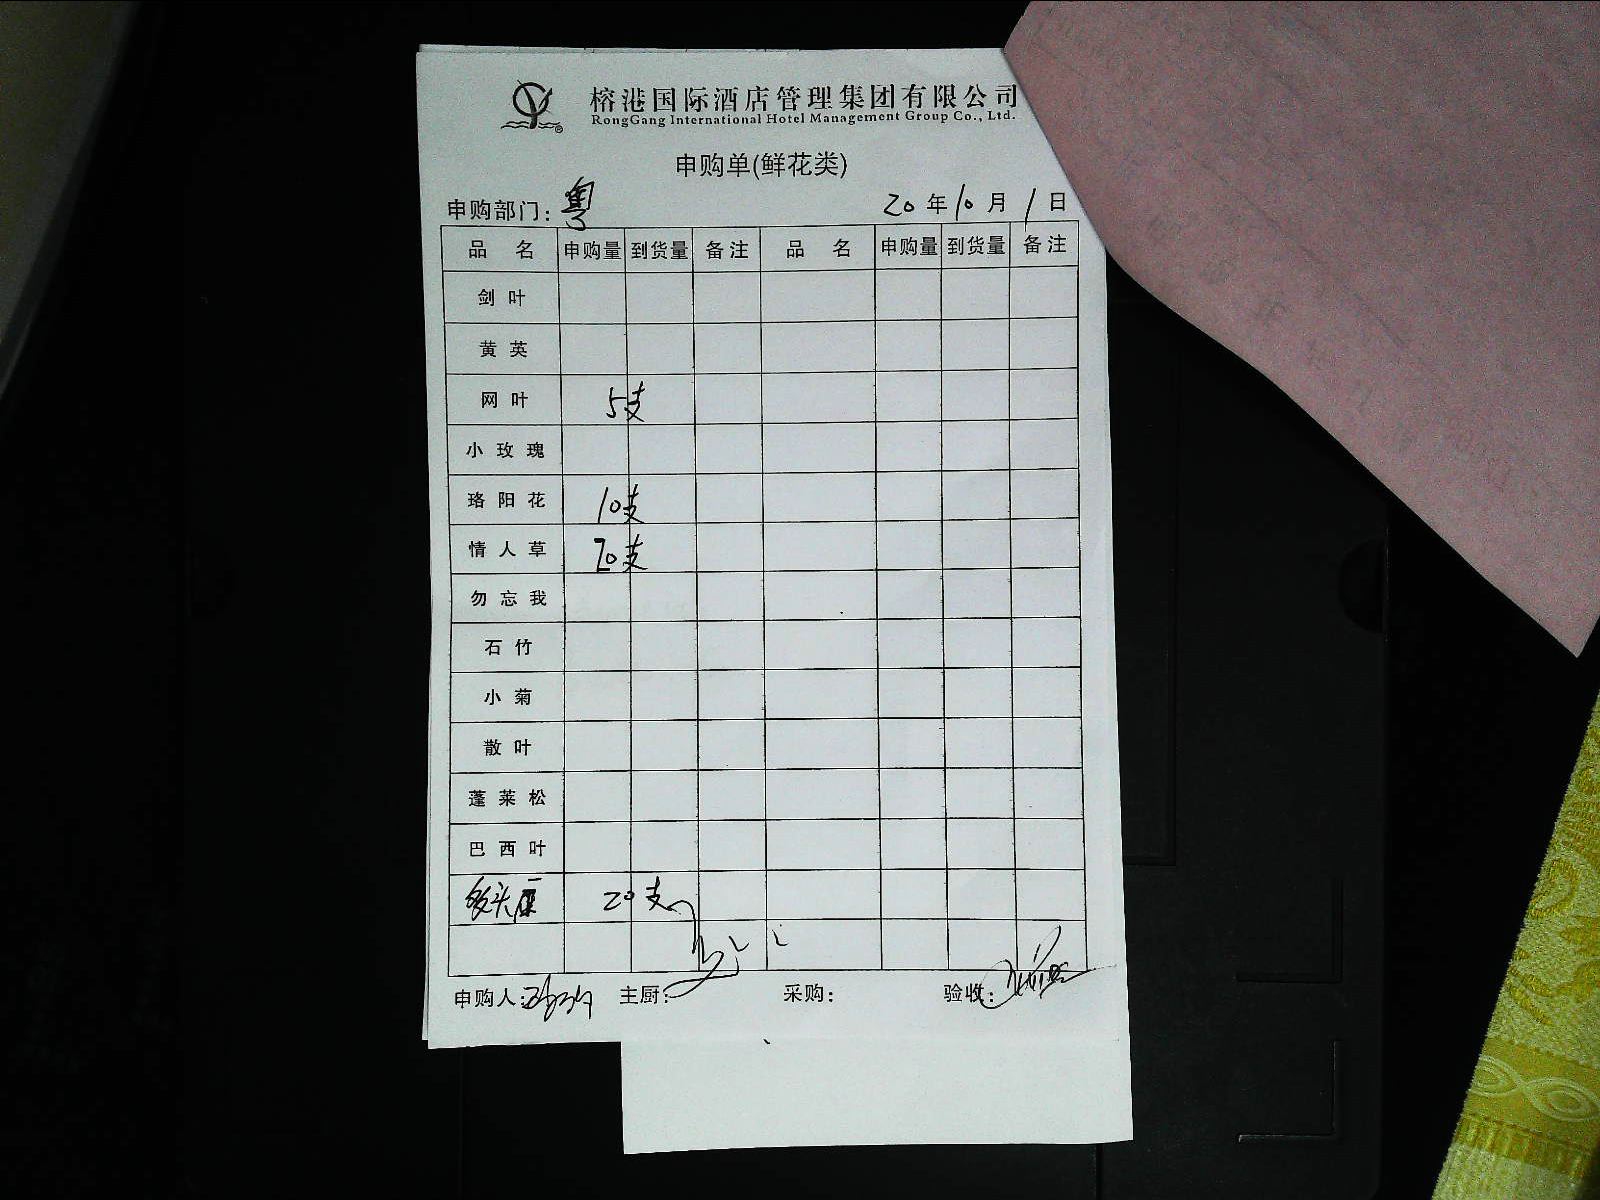 榕港国际酒店管理集团有限公司
RongGang International Hotel Management Group Co., Ltd.
申购单(鲜花类)
申购部门：粤 20年10月1日
品名 申购量 到货量 备注 品名 申购量 到货量 备注
剑叶
黄英
网叶 5支
小玫瑰
珞阳花 10支
情人草 20支
勿忘我
石竹
小菊
散叶
蓬莱松
巴西叶
多头康 20支
申购人： 主厨： 采购： 验收：